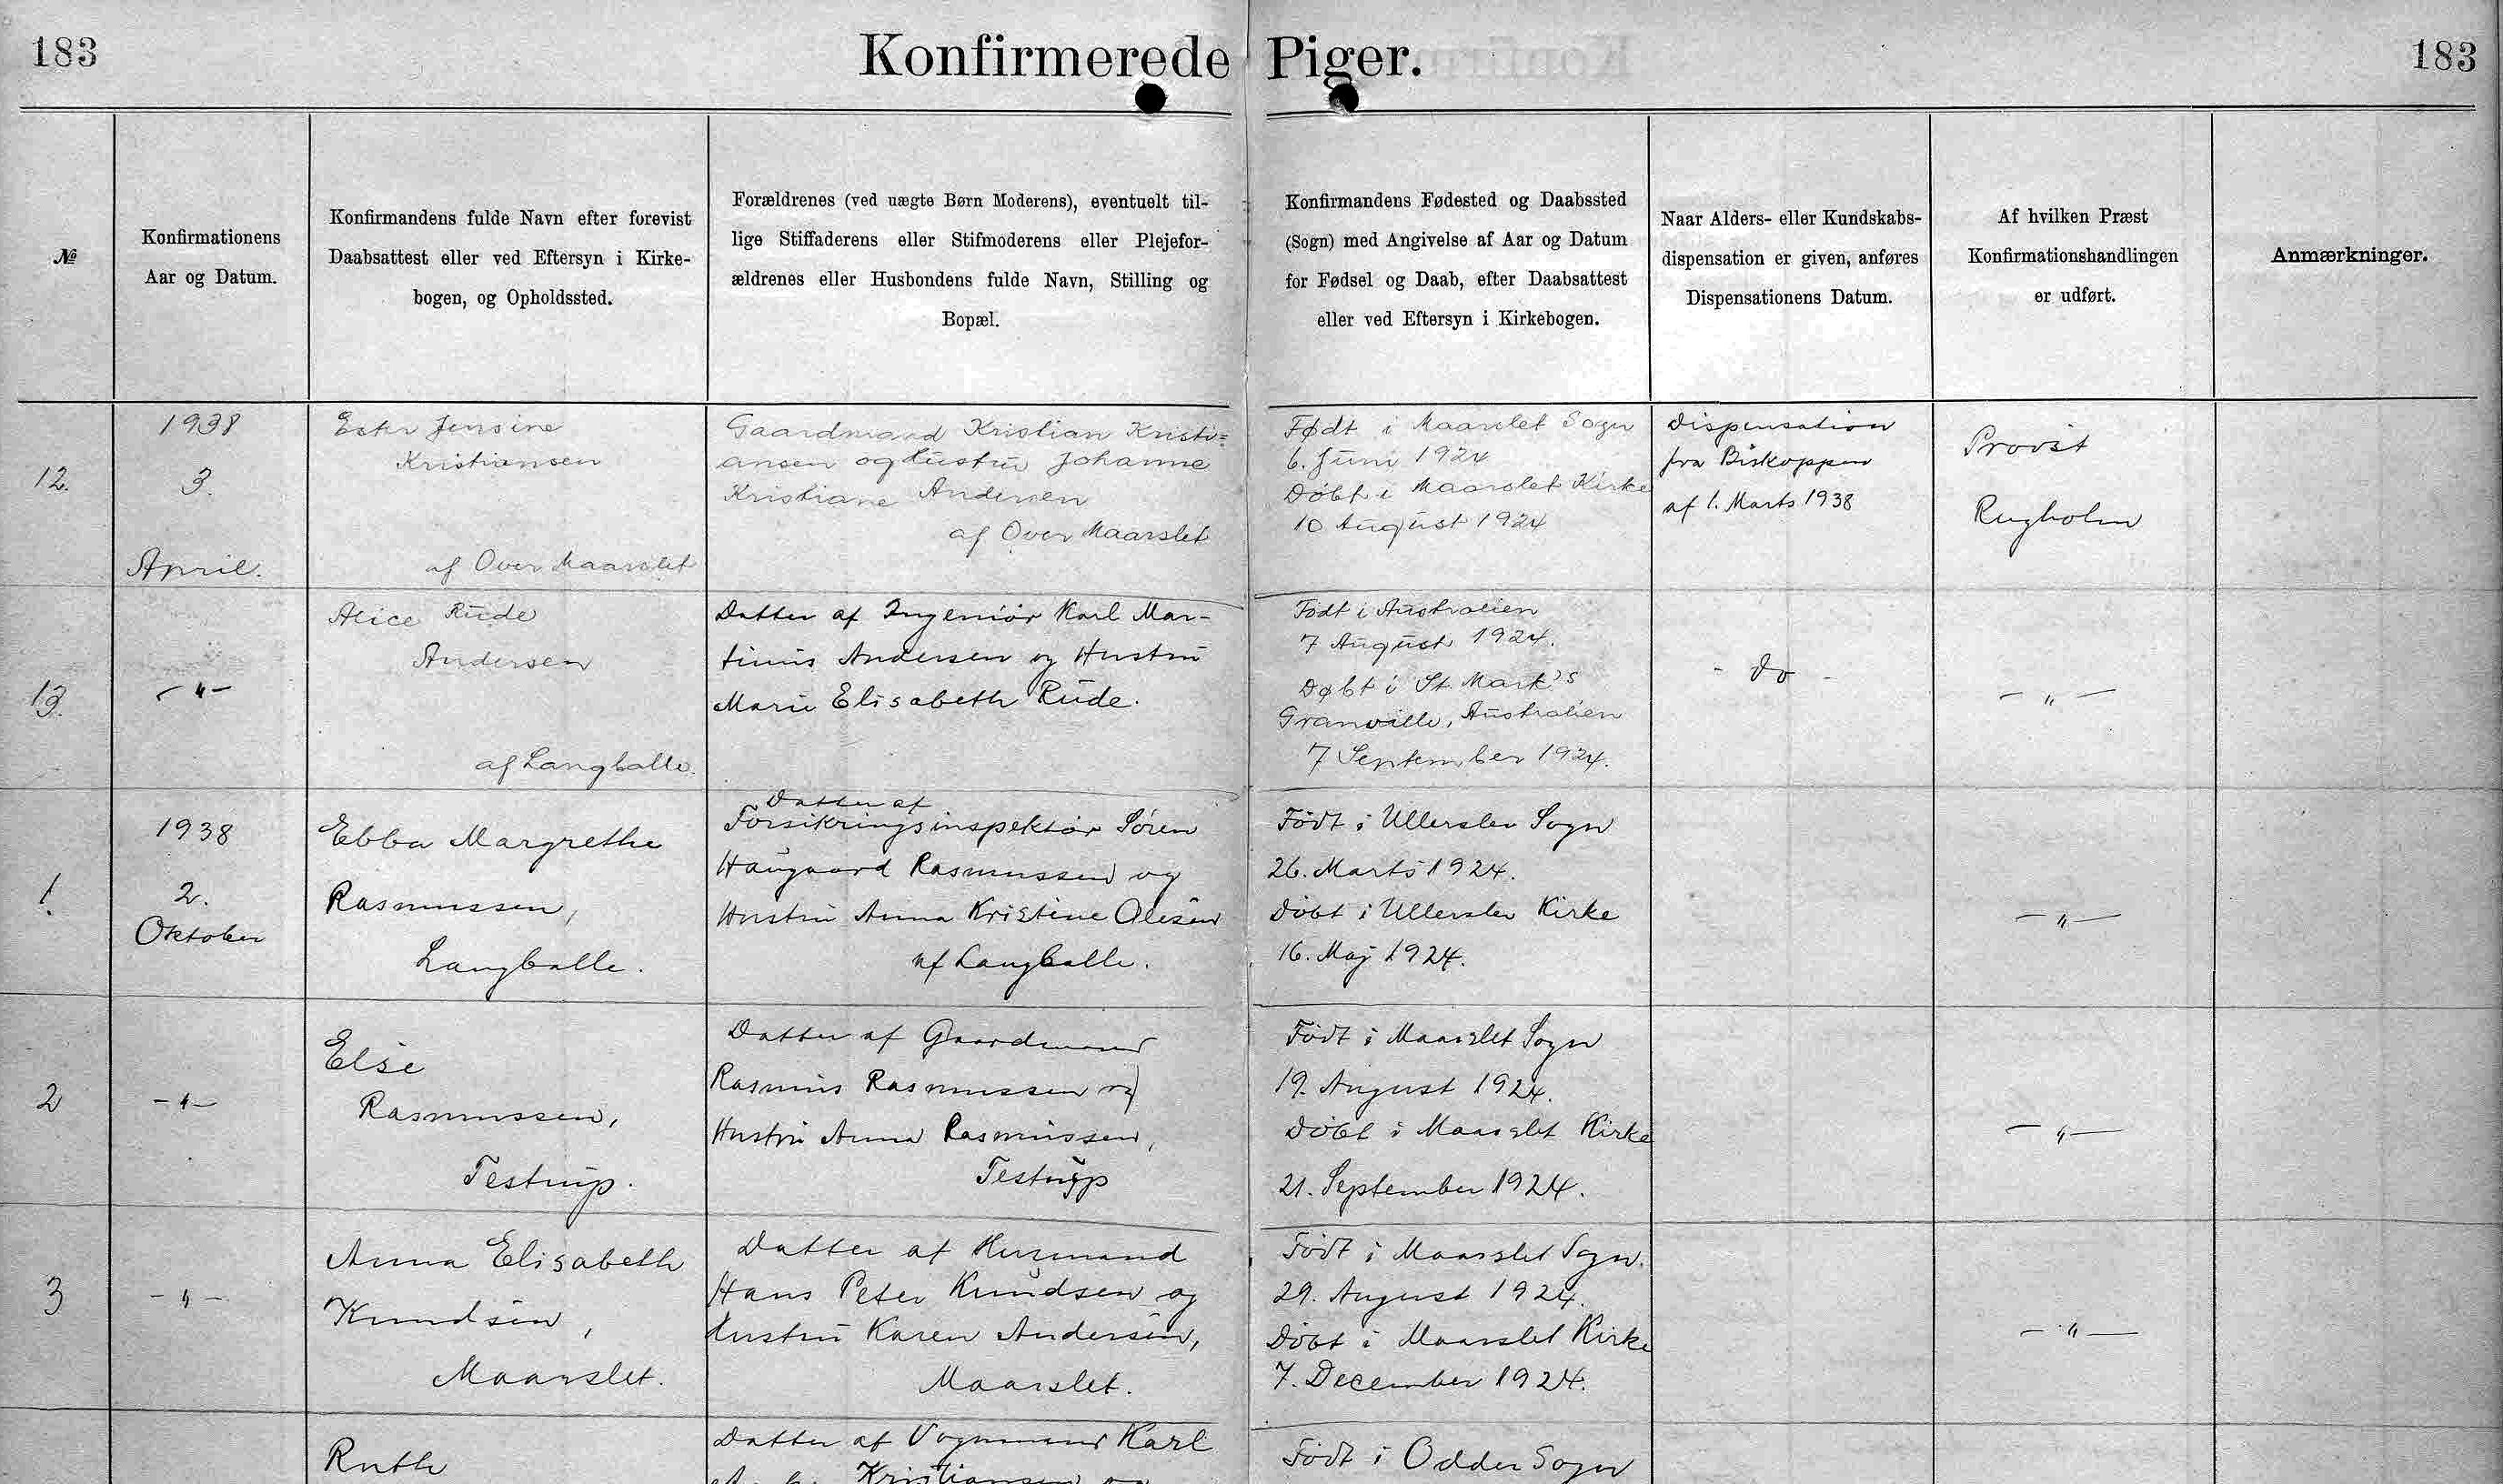 183
Konfirmerede Piger.
183
№
Konfirmationens
Aar og Datum.
Konfirmandens fulde Navn efter forevist
Daabsattest eller ved Eftersyn i Kirke-
bogen, og Opholdssted.
Forældrenes (ved uægte Børn Moderens), eventuelt til-
lige Stiffaderens eller Stifmoderens eller Plejefor-
ældrenes eller Husbondens fulde Navn, Stilling og
Bopæl.
Konfirmandens Fødested og Daabssted
(Sogn) med Angivelse af Aar og Datum
for Fødsel og Daab, efter Daabsattest
eller ved Eftersyn i Kirkebogen.
Naar Alders- eller Kundskabs-
dispensation er given, anføres
Dispensationens Datum.
Af hvilken Præst
Konfirmationshandlingen
er udført.
Anmærkninger.
12.
1938
3.
April.
Ester Jensine
Kristiansen
af Over Maarslet
Gaardmand Kristian Kristi=
ansen og Hustru Johanne
Kristiane Andersen
af Over Maarslet
Født i Maarslet Sogn
6. Juni 1924
Døbt i Maarslet Kirke
10 August 1924
Dispensation
fra Biskoppen
af 1. Marts 1938
Provst
Rugholm
13.
-"-
Alice Rude
Andersen
af Langballe.
Datter af Ingeniør Karl Mar-
tinus Andersen og Hustru
Marie Elisabeth Rude.
Født i Australien
7 August 1924.
Døbt i St. Mark's
Granville, Australien
7 September 1924.
- do -
-"-
1.
1938
2.
Oktober
Ebba Margrethe
Rasmussen,
Langballe.
Datter af
Forsikringsinspektør Søren
Haugaard Rasmussen og
Hustru Anna Kristine Olesen
af Langballe.
Født i Ullerslev Sogn
26. Marts 1924.
Døbt i Ullerslev Kirke
16. Maj 1924.
-"-
2
-"-
Else
Rasmussen,
Testrup.
Datter af Gaardmand
Rasmus Rasmussen og
Hustru Anna Rasmussen,
Testrup
Født i Maarslet Sogn
19. August 1924.
Døbt i Maarslet Kirke
21. September 1924.
-"-
3
-"-
Anna Elisabeth
Knudsen,
Maarslet.
Datter af Husmand
Hans Peter Knudsen og
Hustru Karen Andersen,
Maarslet.
Født i Maarslet Sogn.
29. August 1924.
Døbt i Maarslet Kirke
7. December 1924.
-"-
Ruth
Datter af Vognmand Karl
Kristiansen og
Født i Odder Sogn